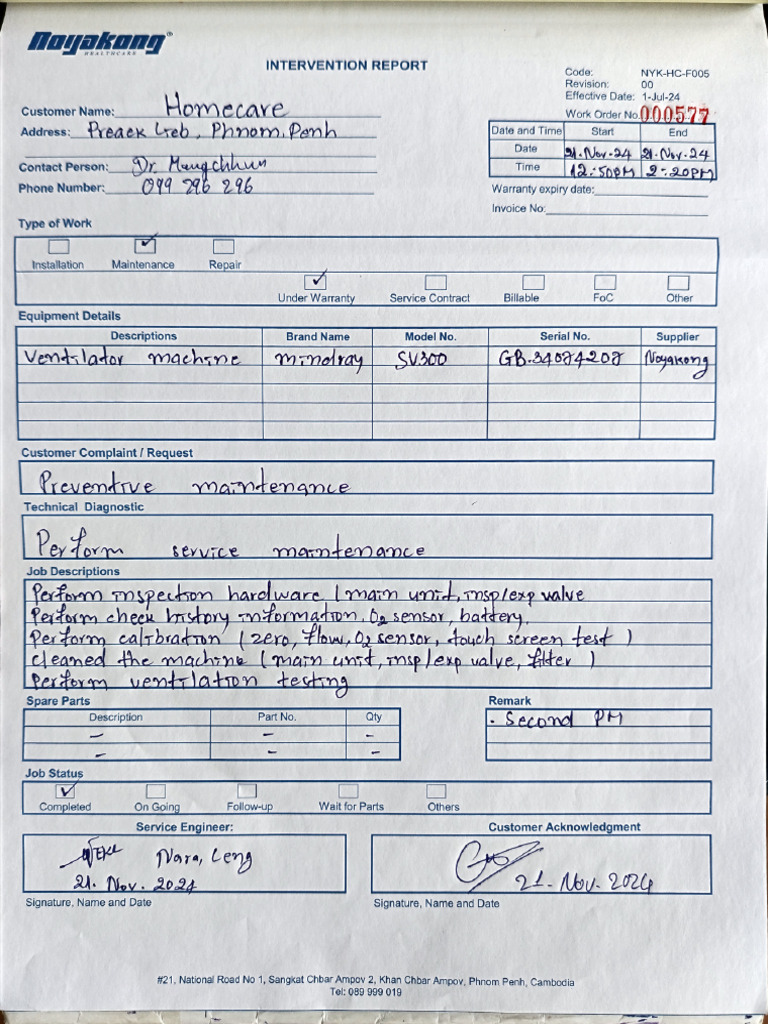 Noyakong®
HEALTHCARE
INTERVENTION REPORT
Code: NYK-HC-F005
Revision: 00
Effective Date: 1-Jul-24
Work Order No. 000577
Customer Name: Homecare
Address: Preaek Leb, Phnom Penh
Contact Person: Dr. Mengchhun
Phone Number: 099 296 296
Date and Time Start End
Date 21-Nov-24 21-Nov-24
Time 12:50PM 2:20PM
Warranty expiry date:
Invoice No:
Type of Work
Installation Maintenance Repair
Under Warranty Service Contract Billable FoC Other
Equipment Details
Descriptions Brand Name Model No. Serial No. Supplier
Ventilator machine mindray SV300 GB.34074207 Noyakong
Customer Complaint / Request
Preventive maintenance
Technical Diagnostic
Perform service maintenance
Job Descriptions
Perform inspection hardware (main unit, insp/exp valve
Perform check history information, O2 sensor, battery.
Perform calibration (zero, flow, O2 sensor, touch screen test)
cleaned the machine (main unit, insp/exp valve, filter)
Perform ventilation testing
Spare Parts
Description Part No. Qty
– – –
– – –
Remark
. Second PM
Job Status
Completed On Going Follow-up Wait for Parts Others
Service Engineer:
Nara, Leng
21. Nov. 2024
Signature, Name and Date
Customer Acknowledgment
21. Nov. 2024
Signature, Name and Date
#21, National Road No 1, Sangkat Chbar Ampov 2, Khan Chbar Ampov, Phnom Penh, Cambodia
Tel: 089 999 019